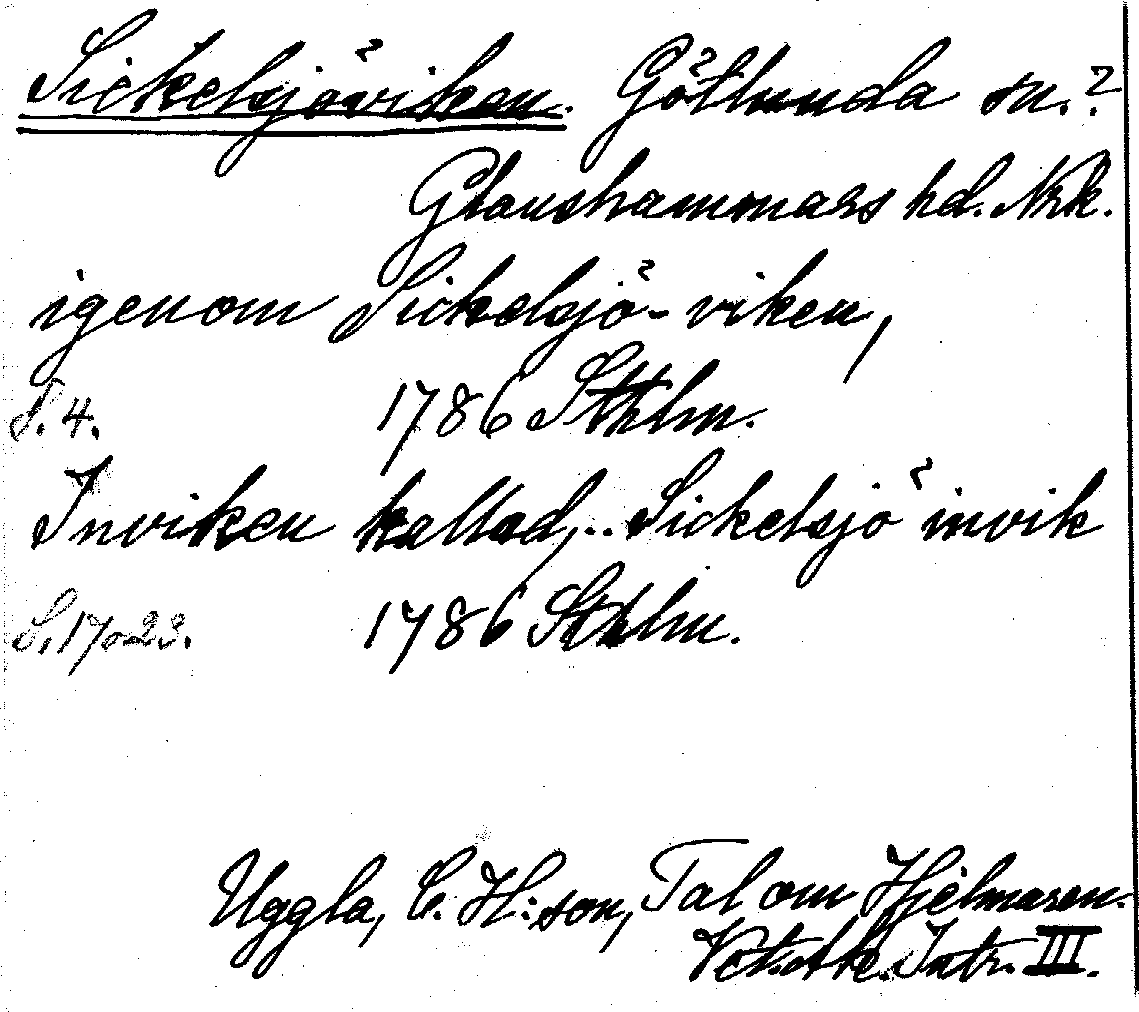 Sickelsjöviken. Götlunda sn.?
Glanshammars hd. Nrk.
igenom Sickelsjö-viken,
S. 4. 1786 Sthlm.
Inviken kallad,.. Sickelsjö invik
S. 17, 23. 1786 Sthlm.
Uggla, C. H:son, Tal om Hjelmaren.
Vet. Ak. Intr. III.